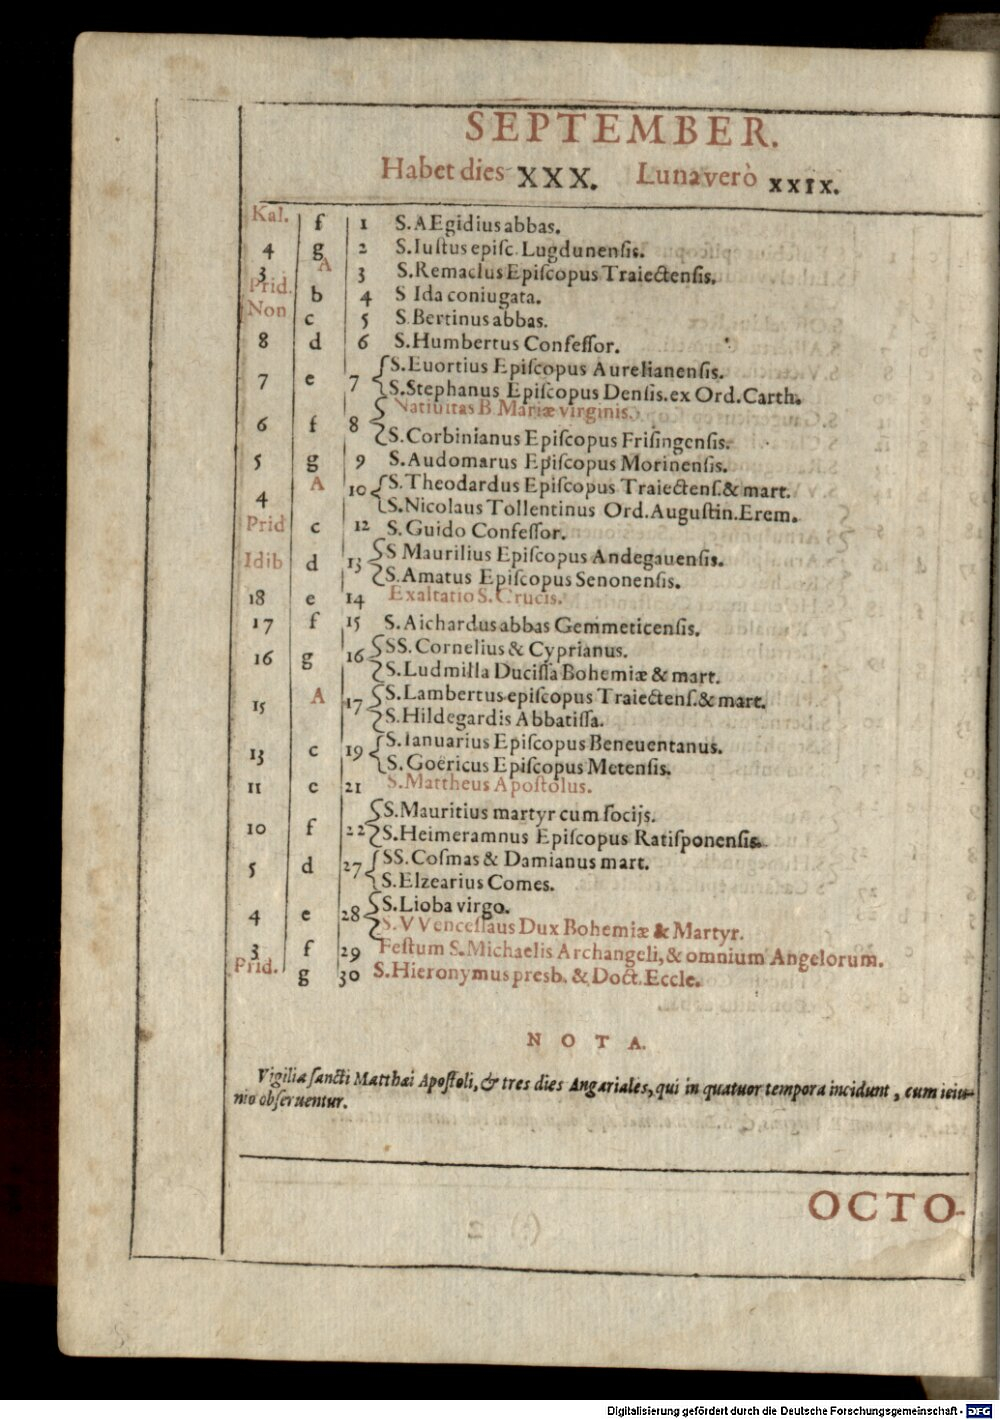 SEPTEMBER.
Habet dies XXX. Luna verò XXIX.
Kal. f 1 S. AEgidius abbas.
4 g 2 S. Iuſtus epiſc. Lugdunenſis.
3 A 3 S. Remaclus Epiſcopus Traiectenſis.
Prid. b 4 S Ida coniugata.
Non c 5 S. Bertinus abbas.
8 d 6 S. Humbertus Confeſſor.
7 e 7 S. Euortius Epiſcopus Aurelianenſis.
S. Stephanus Epiſcopus Denſis. ex Ord. Carth.
6 f 8 Natiuitas B. Mariæ virginis.
S. Corbinianus Epiſcopus Friſingenſis.
5 g 9 S. Audomarus Epiſcopus Morinenſis.
4 A 10 S. Theodardus Epiſcopus Traiectenſ. & mart.
S. Nicolaus Tollentinus Ord. Auguſtin. Erem.
Prid c 12 S. Guido Confeſſor.
Idib d 13 S Maurilius Epiſcopus Andegauenſis.
S. Amatus Epiſcopus Senonenſis.
18 e 14 Exaltatio S. Crucis.
17 f 15 S. Aichardus abbas Gemmeticenſis.
16 g 16 SS. Cornelius & Cyprianus.
S. Ludmilla Duciſſa Bohemiæ & mart.
15 A 17 S. Lambertus epiſcopus Traiectenſ. & mart.
S. Hildegardis Abbatiſſa.
13 c 19 S. Ianuarius Epiſcopus Beneuentanus.
S. Goëricus Epiſcopus Metenſis.
11 e 21 S. Mattheus Apoſtolus.
10 f 22 S. Mauritius martyr cum ſocijs.
S. Heimeramnus Epiſcopus Ratiſponenſis.
5 d 27 SS. Coſmas & Damianus mart.
S. Elzearius Comes.
4 e 28 S. Lioba virgo.
S. VVenceſlaus Dux Bohemiæ & Martyr.
3 f 29 Feſtum S. Michaelis Archangeli, & omnium Angelorum.
Prid. g 30 S. Hieronymus presb. & Doct. Eccle.
NOTA.
Vigilia ſancti Matthæi Apoſtoli, & tres dies Angariales, qui in quatuor tempora incidunt, cum ieiu-
nio obſeruentur.
OCTO-
Digitalisierung gefördert durch die Deutsche Forschungsgemeinschaft - DFG